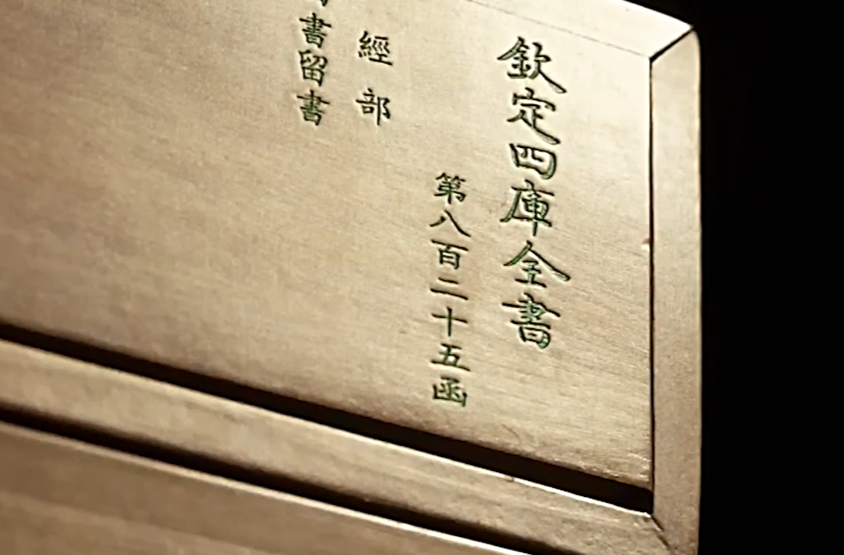 欽定四庫全書
第八百二十五函
經部
書留書